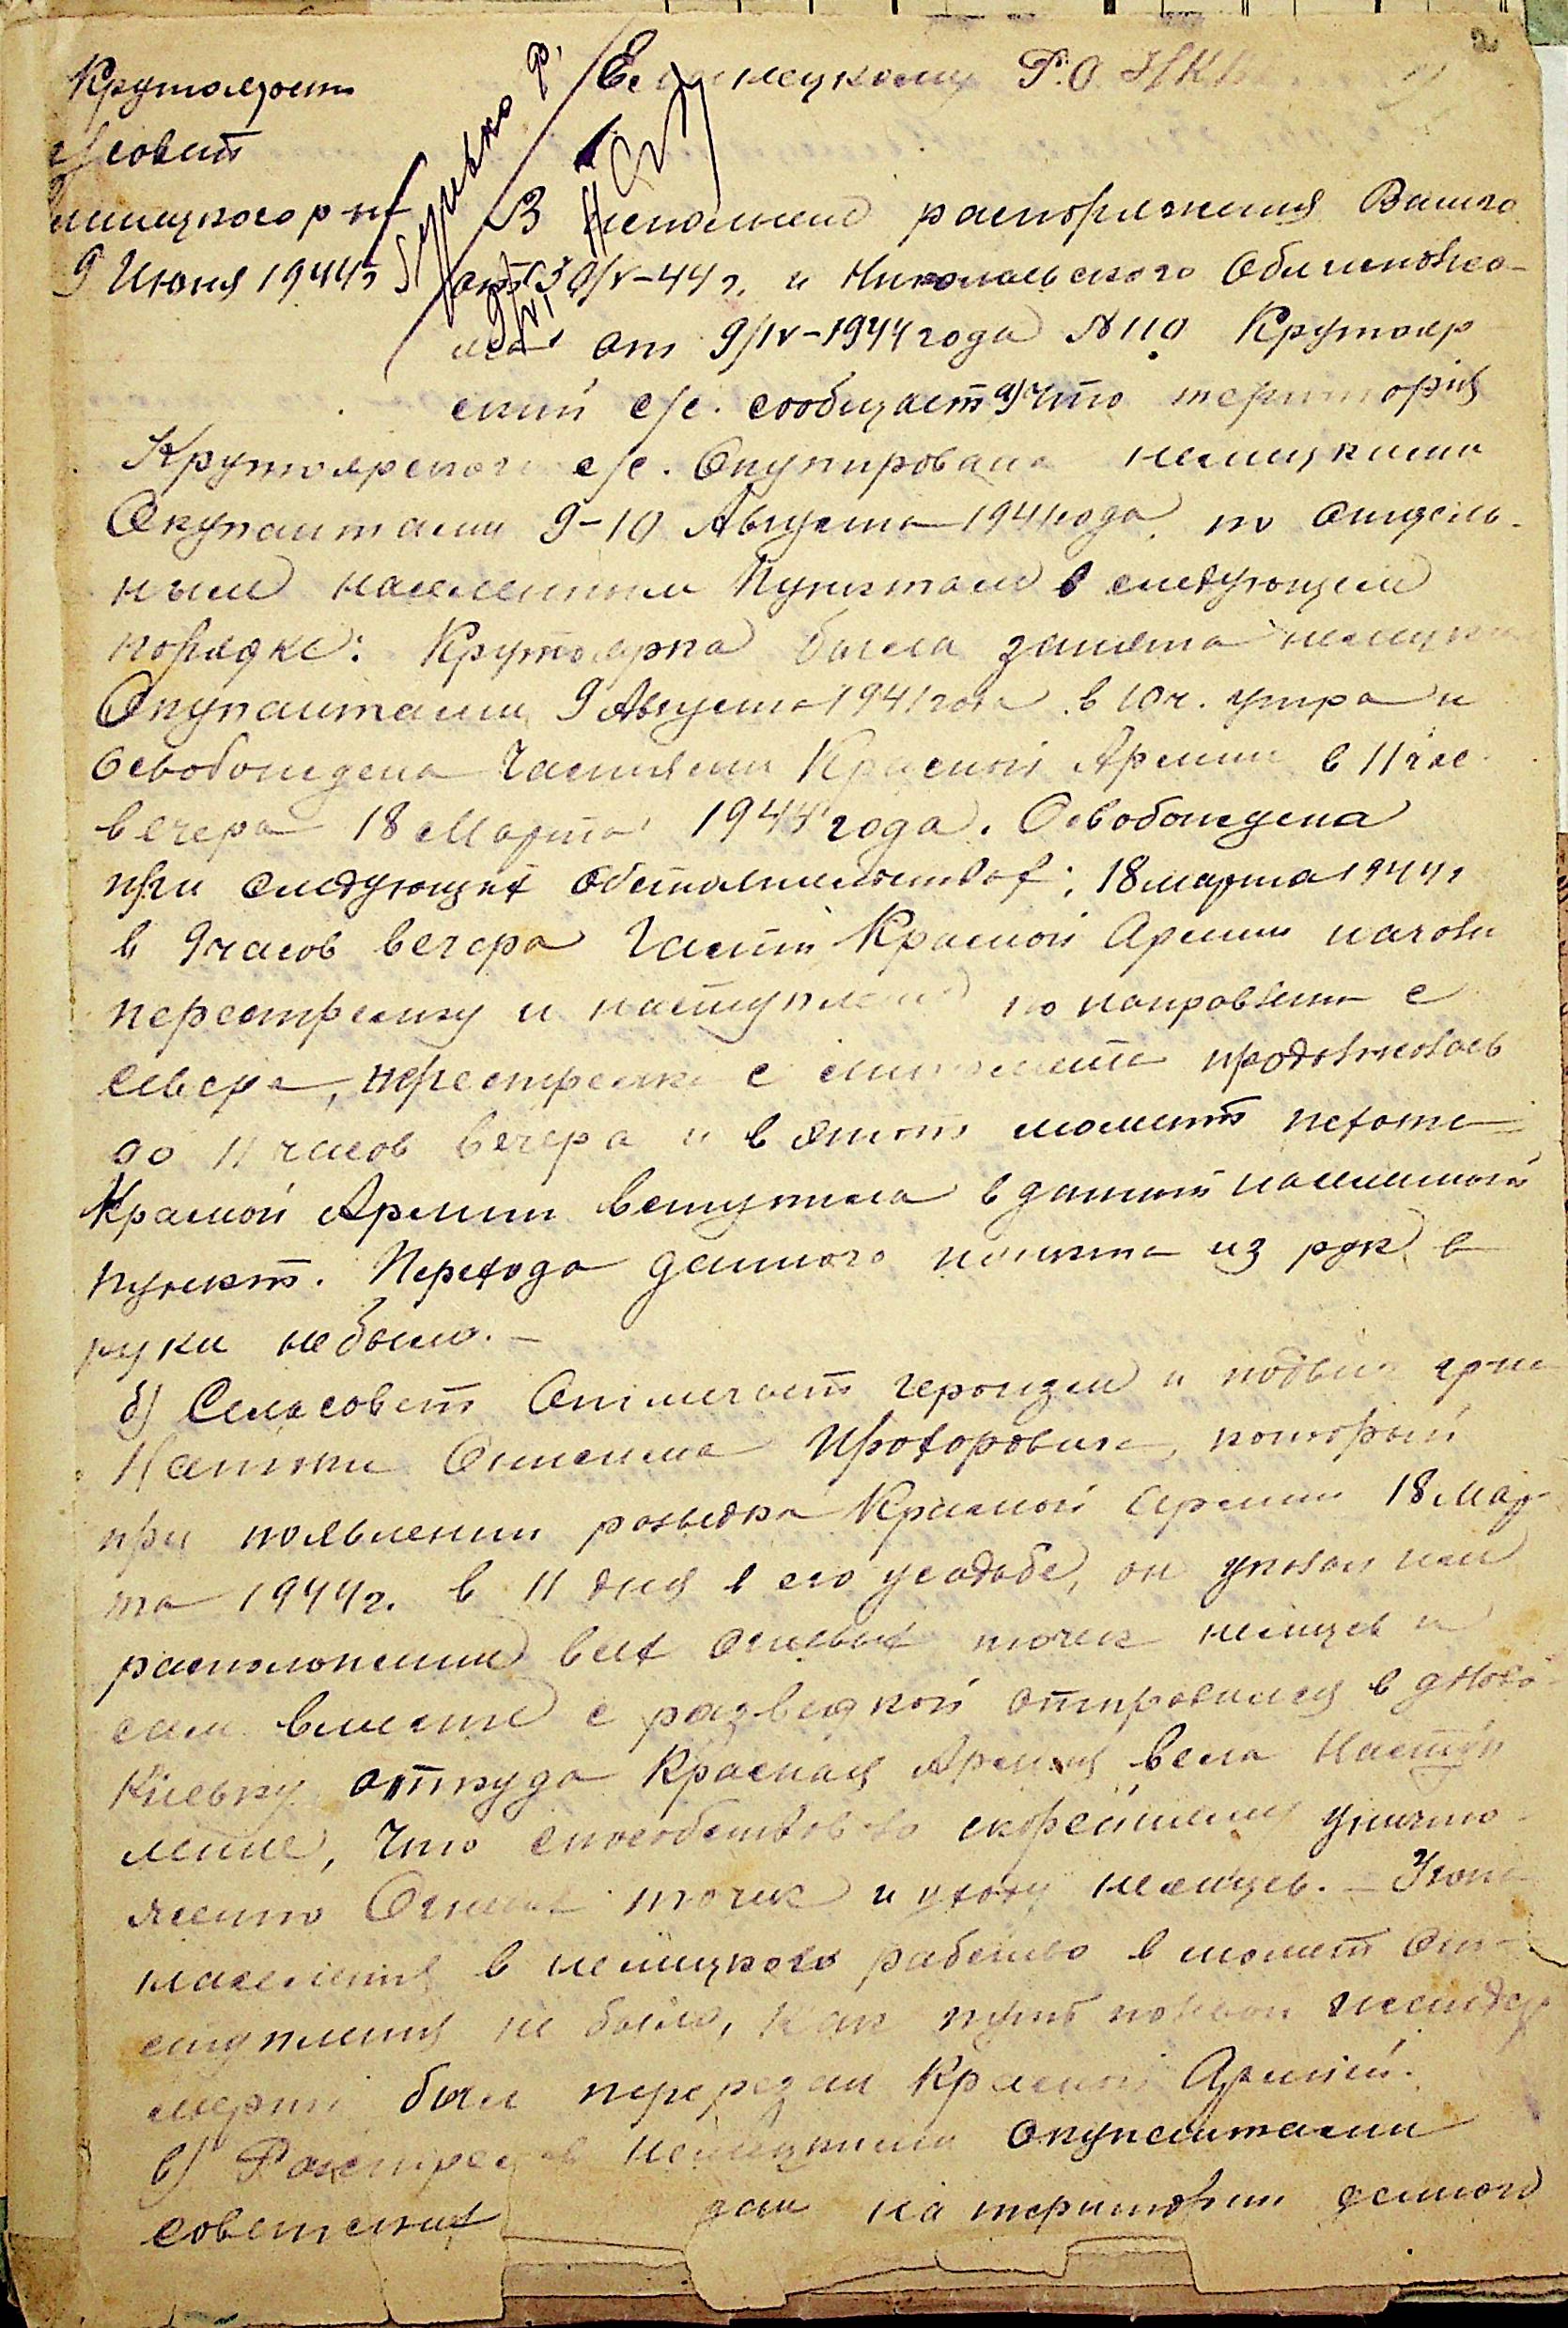 2
Крутоярск
с/совет
Еланецкому Р.О. НКВ
р-на
9 Июня 1944г
В исполнение распоряжения Вашего
от 30/V-44 г. и Николаевского Облисполко-
ма от 9/IV-1944 года N 110 Крутояр
ский с/с. сообщает а) что територия
Крутоярского с/с. Окупирована немецкими
Окупантами 9-10 Августа 1941 года, по отдель-
ным населенным пунктам в следующем
порядке: Крутоярка была занята немецки
Окупантами 9 Августа 1941 года в 10 ч. утра и
Освобождена Частями Красной Армии в 11 час.
вечера 18 Марта 1944 года. Освобождена
при следующих обстоятельствах: 18 марта 1944 г
в 9 часов вечера Части Красной Армии начали
перестрелку и наступление по направлению с
севера, перестрелка с продолжалась
до 11 часов вечера и в этот момент пехота
Красной Армии вступила в данный населенный
пункт. Перехода данного пункта из рук в
руки не было. –
б) Сельсовет Отмечает героизм и подвиг гр-на
Прохоровича, который
при появлении разведки Красной Армии 18 Мар-
та 1944 г. в 11 дня в его усадьбе, он указал им
расположение всех огневых точек немцев и
сам вместе с разведкой отправился в д Ново
Киевку, откуда Красная Армия вела Наступ
ление, Что способствовало скорейшему уничто-
жению Огневых точек и уходу немцев. – Угона
населения в немецкого рабство в момент От-
ступления не было, так как путь
был перерезан Красной Армией.
в) Расстрелов немецкими Окупантами
советских дан на територии данного